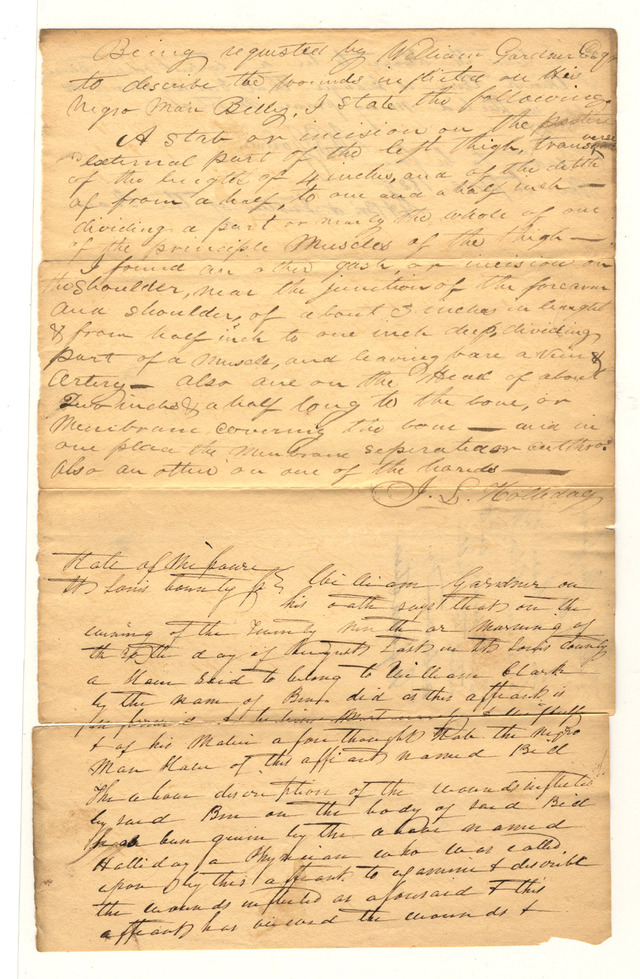 Being requested by William Gardner Esqr
to describe the wounds inflicted on his
Negro Man Billy, I state the following,
A Stab or incision on the
external part of the left thigh, transverse
of the length of 4 inches, and of the debth
of from a half, to one and a half inch —
dividing a part or nearly the whole of one
of the principle Muscles of the thigh —
I found an other gash, or incision on
the Shoulder, near the junction of the forearm
and shoulder, of about 3 inches in lenght
& from half inch to one inch deep, dividing
part of a Muscle, and leaving bare a Vein &
Artery — also one on the Head of about
Two inches & a half long to the bone, or
Membrane covering the bone — and in
one place the Membrane seperated or cut thro'
also an other on one of the hands —
J. L. Holliday
State of Missouri
St Louis County William Gardner on
his oath says that on the
evening of the Twenty Ninth or Morning of
the 30th day of August last in St Louis County
a Slave said to belong to William Clark
by the name of Ben did as this affiant is
& of his Malice aforethought Stab the negro
Man Slave of this affiant named Bill
The above discription of the wounds inflicted
by said Ben on the body of said Bill
has been given by the above named
Halliday a Physician who was called
upon by this affiant to examine & describe
the wounds inflicted as aforesaid & this
affiant has viewed the wounds &